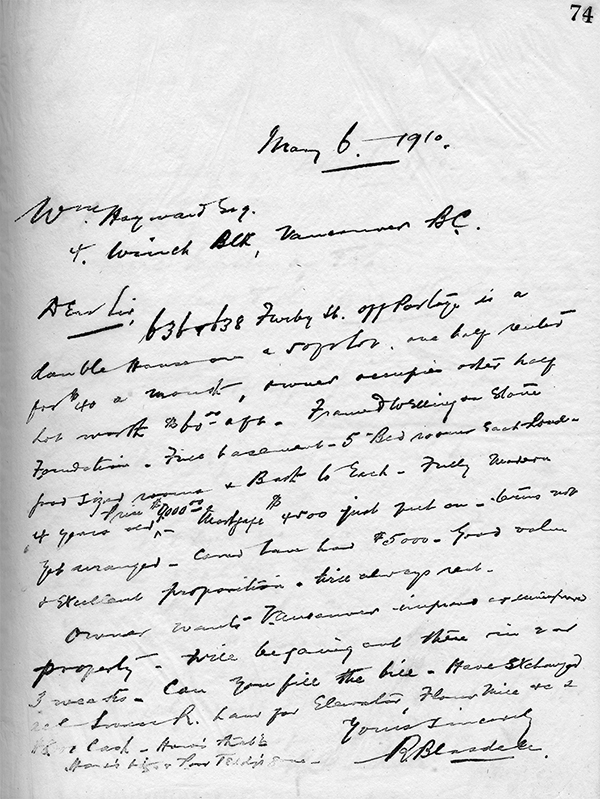 74
May 6. - 1910.
Wm. Hayward Esq.
4. Winch Blk, Vancouver B.C.
Dear Sir,
636 & 638 Furby St. off Portage is a
double House on a 50 ft lot. one half rented
for $40 a month, owner occupies other half
Lot worth $60.00 a ft. - Frame Dwelling on Stone
Foundation - Full basement - 5 Bed rooms Each
good sized rooms & Bath to Each - Fully Modern
Price $9000.00
4 years old, - Mortgage $4500 just put on - terms not
yet arranged - could have had $5000 - Good value
& Excellent proposition - will always rent.
Owner wants Vancouver improved or unimproved
property - will be going out there in 2 or
3 weeks - Can you fill the bill - Have Exchanged
R. Land for Elevator, Flour Mill &c &
Cash - How's that
Yours Sincerely
R. Blasdell